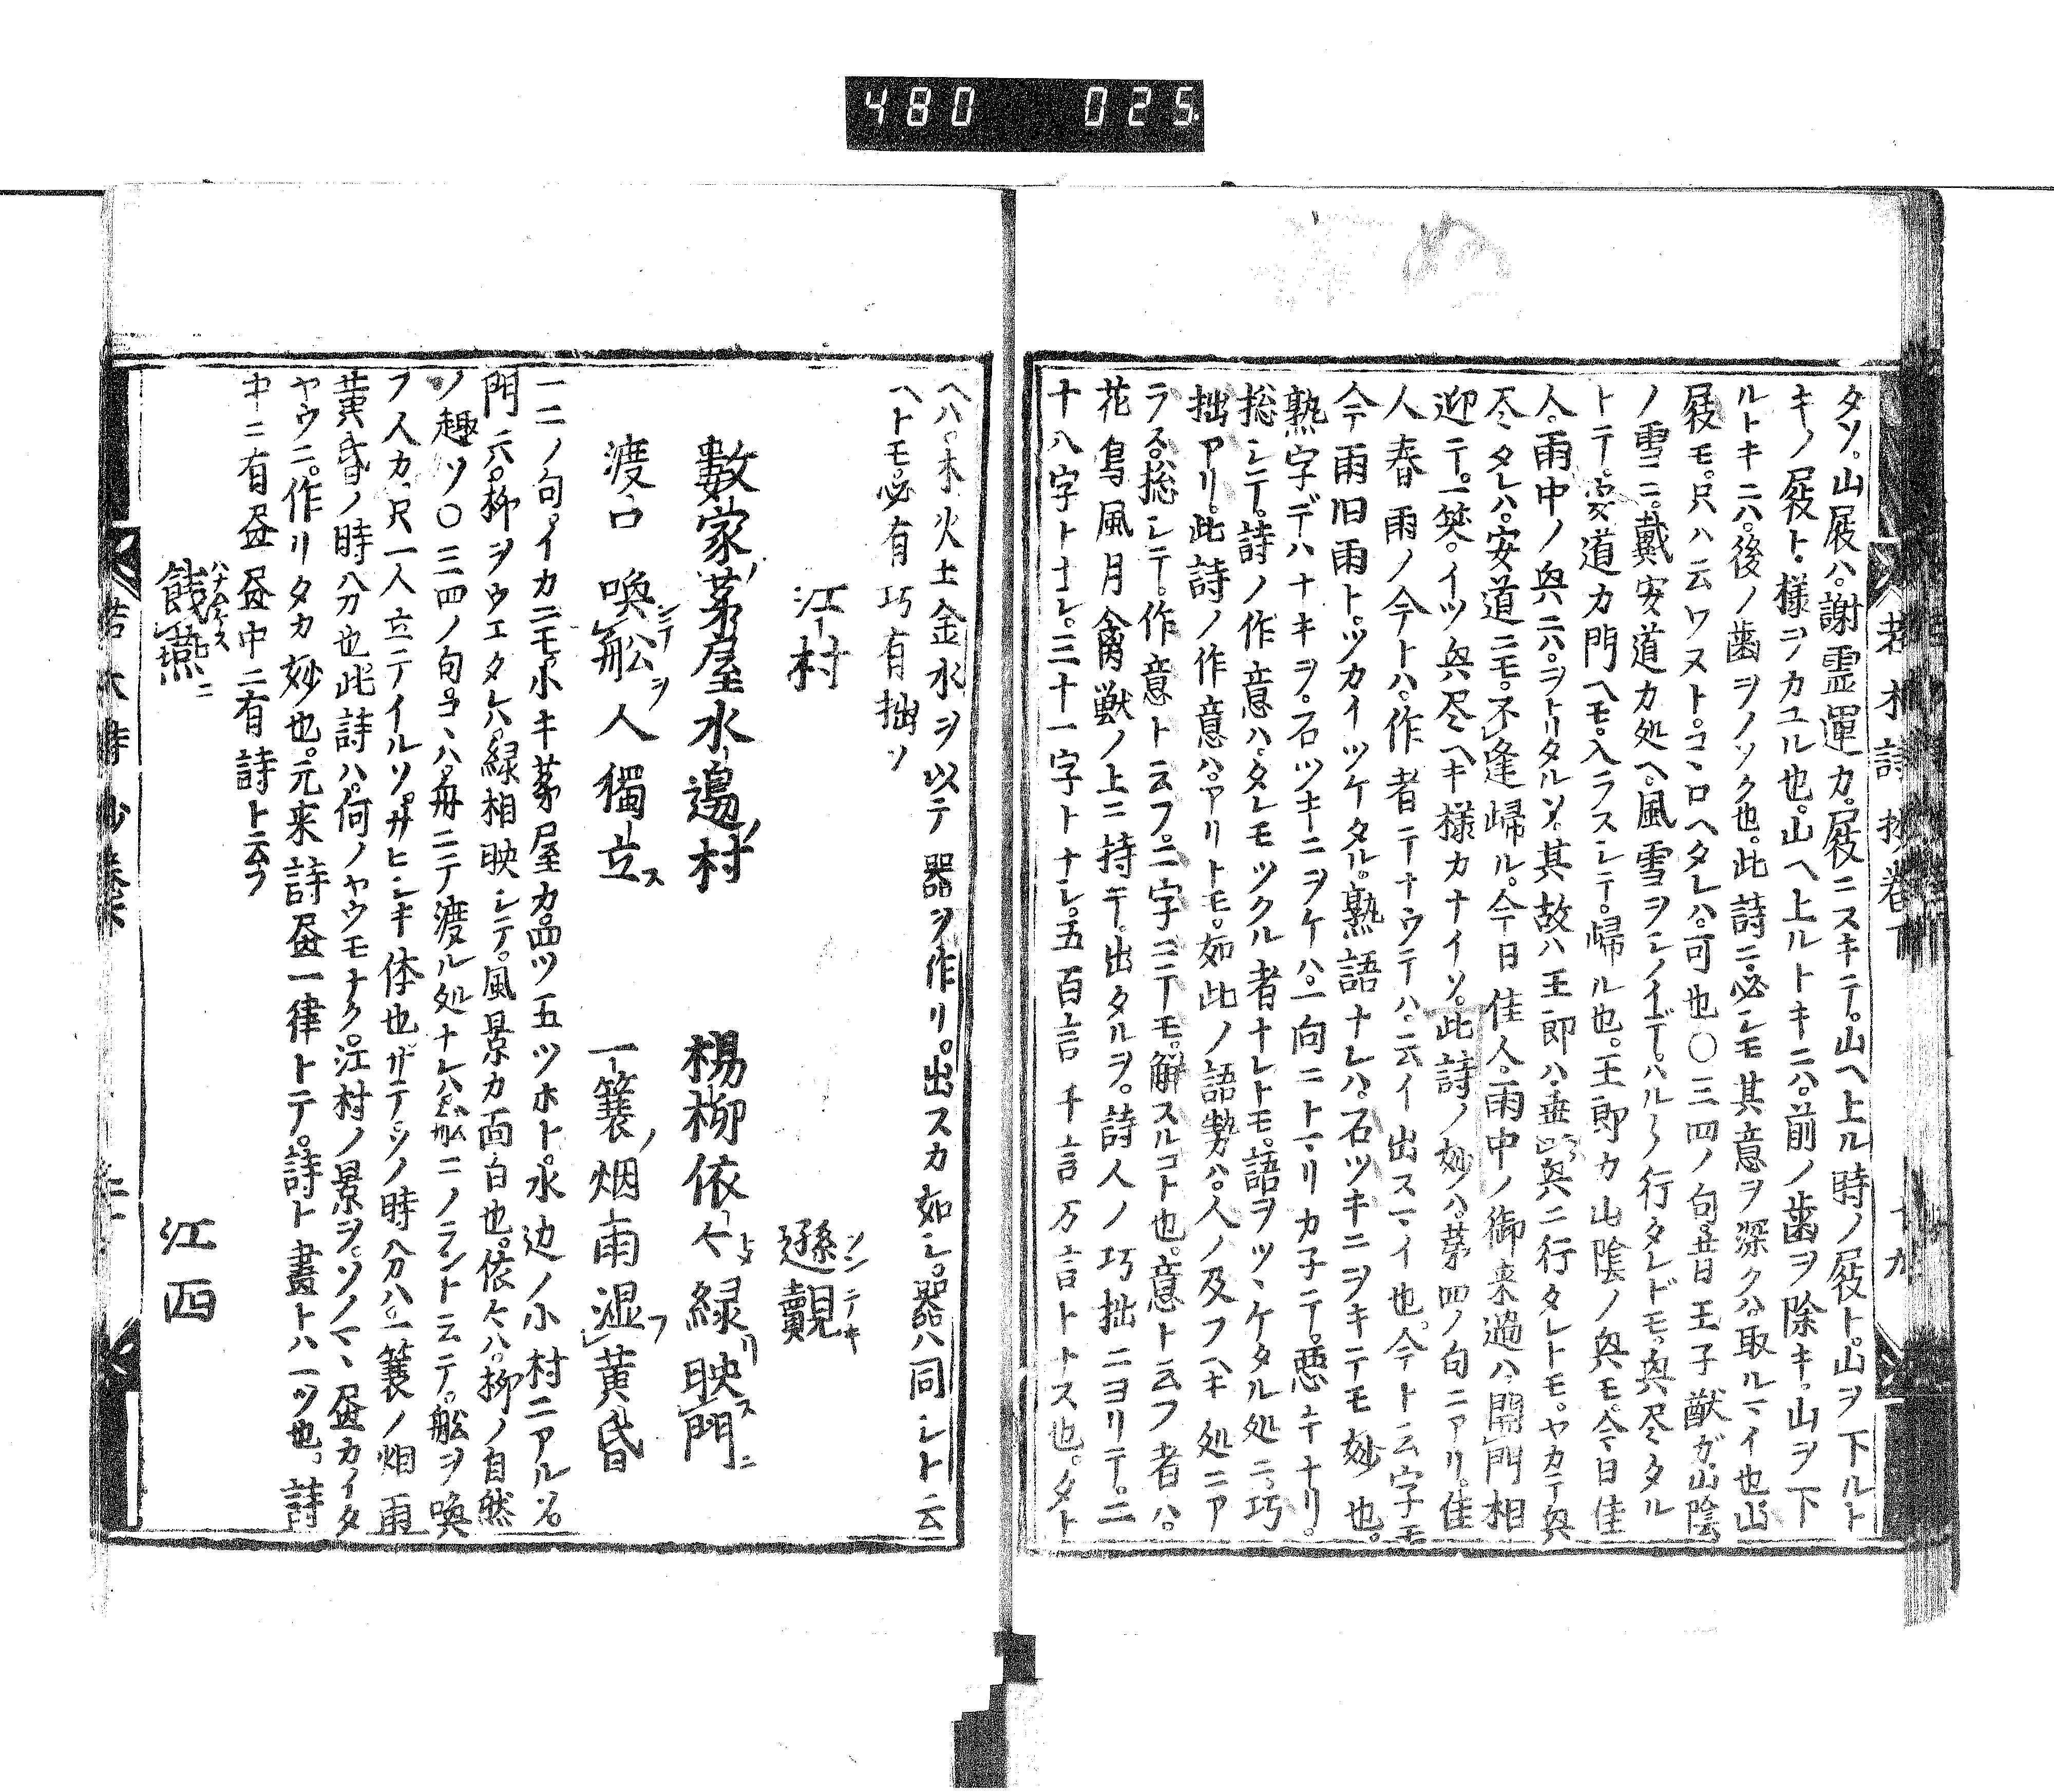 480 025
若木詩抄巻下 十九
タソ。山屐ハ。謝霊運カ。屐ニスキニテ。山ヘ上ル時ノ屐ト。山ヲ下ルト
キノ屐ト。様ヲカユル也。山ヘ上ルトキニハ。前ノ歯ヲ除キ。山ヲ下
ルトキニハ。後ノ歯ヲノソク也。此詩ニ必シモ其意ヲ深クハ取ルマイ也。山
屐モ。只ハ云ワストコヽロヘタレハ。可也〇三四ノ句。昔日王子猷ガ。山陰
ノ雪ニ。戴安道カ処ヘ。風雪ヲシノイデ。ハル〳〵行タレドモ。興尽タル
トテ。安道カ門ヘモ。入ラスシテ。帰ル也。王郎カ山陰ノ興モ。今日佳
人。雨中ノ興ニハ。ヲトリタルソ。其故ハ王郎ハ。乗興ニ行タレトモ。ヤカテ興
尽タレハ。安道ニモ。不逢帰ル。今日佳人。雨中ノ御来過ハ。開門相
迎テ。一笑。イツ興尽ヘキ様カナイソ。此詩ノ妙ハ。第四ノ句ニアリ。佳
人春雨ノ今トハ。作者ニテナウテハ。云イ出スマイ也。今ト云字モ
今雨旧雨ト。ツカイツケタル。熟語ナレハ。石ツキニヲキテモ妙也。
熟字デハナキヲ。石ツキニヲケハ。一向ニトマリカ子テ。悪キナリ。
惣シテ。詩ノ作意ハ。タレモツクル者ナレトモ。語ヲツヽケタル処ニ。巧
拙アリ。此詩ノ作意ハ。アリトモ。如此ノ語勢ハ。人ノ及フヘキ処ニア
ラス。惣シテ。作意ト云フ。二字ニテモ。解スルコト也。意ト云フ者ハ。
花鳥風月禽獣ノ上ニ持テ。出タルヲ。詩人ノ巧拙ニヨリテ。二
十八字トナシ。三十一字トナシ。五百言千言万言トナス也。タト
ヘハ。木火土金水ヲ以テ器ヲ作リ。出スカ如シ。器ハ同シト云
ヘトモ。必有巧有拙ソ
江村 孫覿
ソンテキ
數家ノ茅屋水邉ノ村 楊柳依々トメ緑リ映スﾚ門ニ
渡口喚シテﾚ舩ヲ人獨立ス 一簑ノ烟雨湿フﾚ黄昏
一二ノ句。イカニモ小キ茅屋カ。四ツ五ツホト。水边ノ小村ニアルソ。
門ニハ。柳ヲウエタレハ。緑相映シテ。風景カ面白也。依々ハ。柳ノ自然
ノ趣ソ〇三四ノ句。コヽハ。舟ニテ渡ル処ナレハ。舩ニノラント云テ。舩ヲ喚
フ人カ。只一人立テイルソ。サヒシキ体也。サテソノ時分ハ。一簑ノ烟雨
黄昏ノ時分也。此詩ハ。何ノヤウモナク。江村ノ景ヲ。ソノマヽ昼カイタ
ヤウニ。作リタカ妙也。元来詩昼一律トテ。詩ト畫トハ一ツ也。詩
中ニ有昼昼中ニ有詩ト云フ
餞ハナムケスﾚ燕ニ 江西